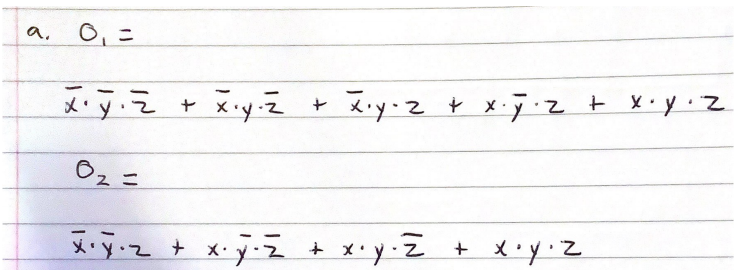 a. O₁ =
x̅·y̅·z̅ + x̅·y·z̅ + x̅·y·z + x·y̅·z + x·y·z
O₂ =
x̅·y̅·z + x·y̅·z̅ + x·y·z̅ + x·y·z